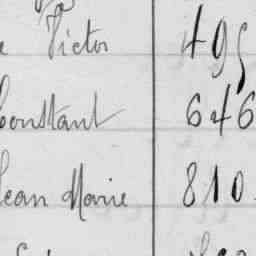 Victor 495
Constant 646
Jean Marie 810